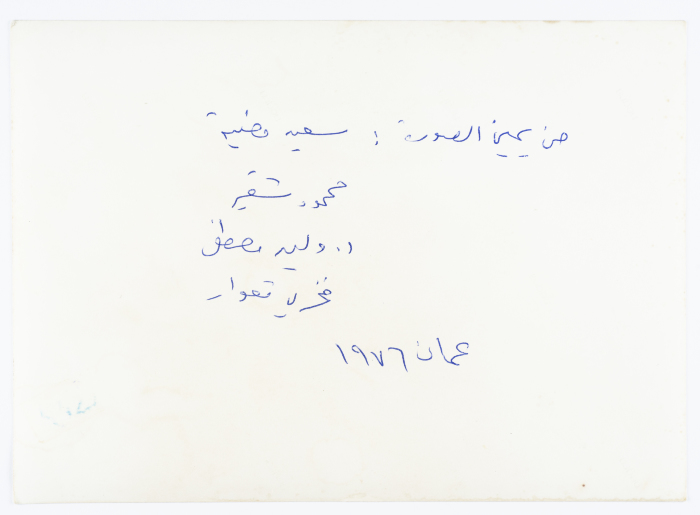 من يمين الصورة : سعيد مضية
محمود شقير
د. وليد مصطفى
فخري قعوار
عمان ١٩٧٦